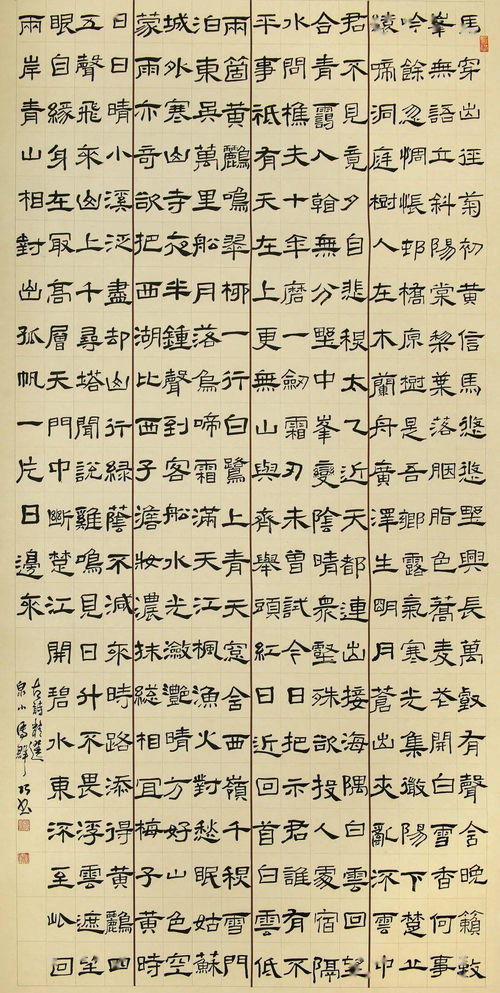 馬穿山徑菊初黃信馬悠悠野興長萬壑有聲含晚籟數
峯無語立斜陽棠梨葉落胭脂色蕎麦花開白雪香何事
吟餘忽惆悵邨橋原樹是吾鄉露氣寒光集微陽下楚丘
猿啼洞庭樹人在木蘭舟廣澤生明月蒼山夾亂流雲中
君不見竟夕自悲秋太乙近天都連山接海隅白雲回望
合青靄入看無分野中峯變陰晴衆壑殊欲投人處宿隔
水問樵夫十年磨一劍霜刃未曾試今日把示君誰有不
平事祗有天在上更無山與齊舉頭紅日近回首白雲低
兩箇黃鸝鳴翠柳一行白鷺上青天窓含西嶺千秋雪門
泊東吳萬里船月落烏啼霜滿天江楓漁火對愁眠姑蘇
城外寒山寺夜半鍾聲到客船水光瀲灧晴方好山色空
蒙雨亦奇欲把西湖比西子澹妝濃抹總相宜梅子黃時
日日晴小溪泛盡却山行綠蔭不減來時路添得黃鸝四
五聲飛來山上千尋塔聞說雞鳴見日升不畏浮雲遮望
眼自緣身在最高層天門中斷楚江開碧水東流至此回
兩岸青山相對出孤帆一片日邊來
古詩精選